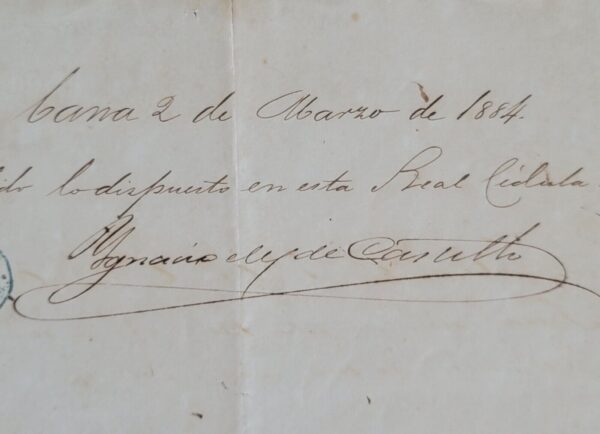 bana 2 de Marzo de 1884.
do lo dispuesto en esta Real Cédula
Ygnacio de Castillo